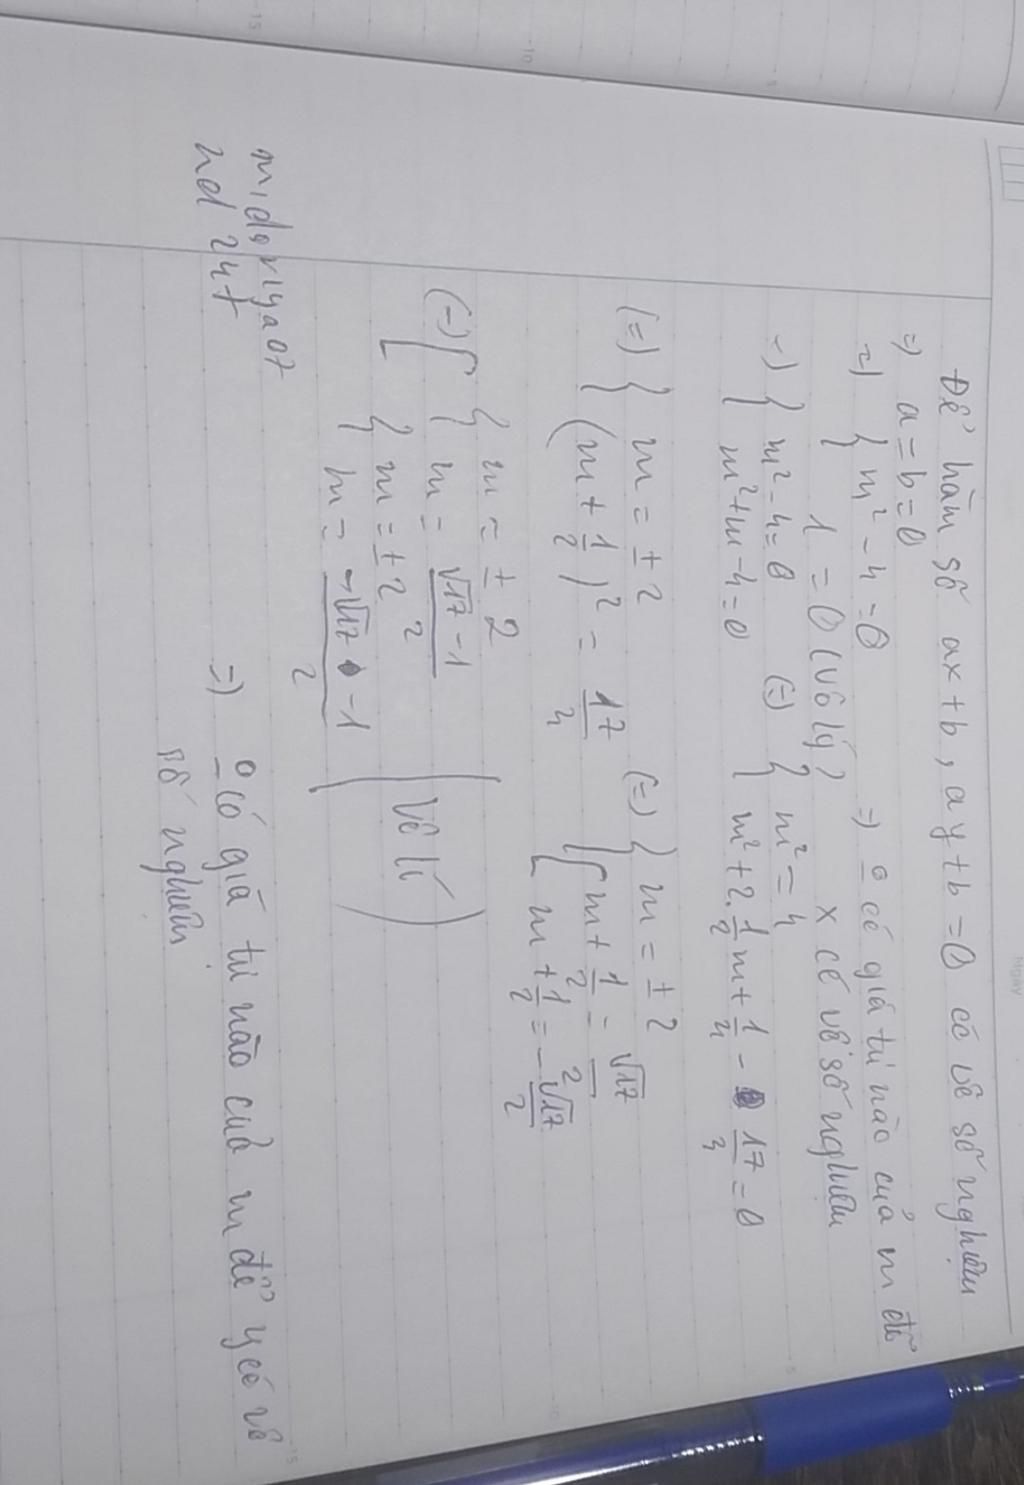 Để hàm số ax+b, ay+b=0 có vô số nghiệm
=) a=b=0
=) { m² - 4 = 0
1 = 0 (vô lý) =) o có giá trị nào của m để x có vô số nghiệm
=) { m² - 4 = 0
m² + m - 4 = 0 (=) { m² = 4
m² + 2.1/2 m + 1/4 - 17/4 = 0
(=) { m = ± 2
(m + 1/2)² = 17/4 (=) { m = ± 2
[ m + 1/2 = √17/2
m + 1/2 = -√17/2
(=) [ { m = ± 2
m = (√17 - 1)/2
{ m = ± 2
m = (-√17 - 1)/2 (Vô lí)
=) o có giá trị nào của m để y có vô
số nghiệm
midoriya07
hd247